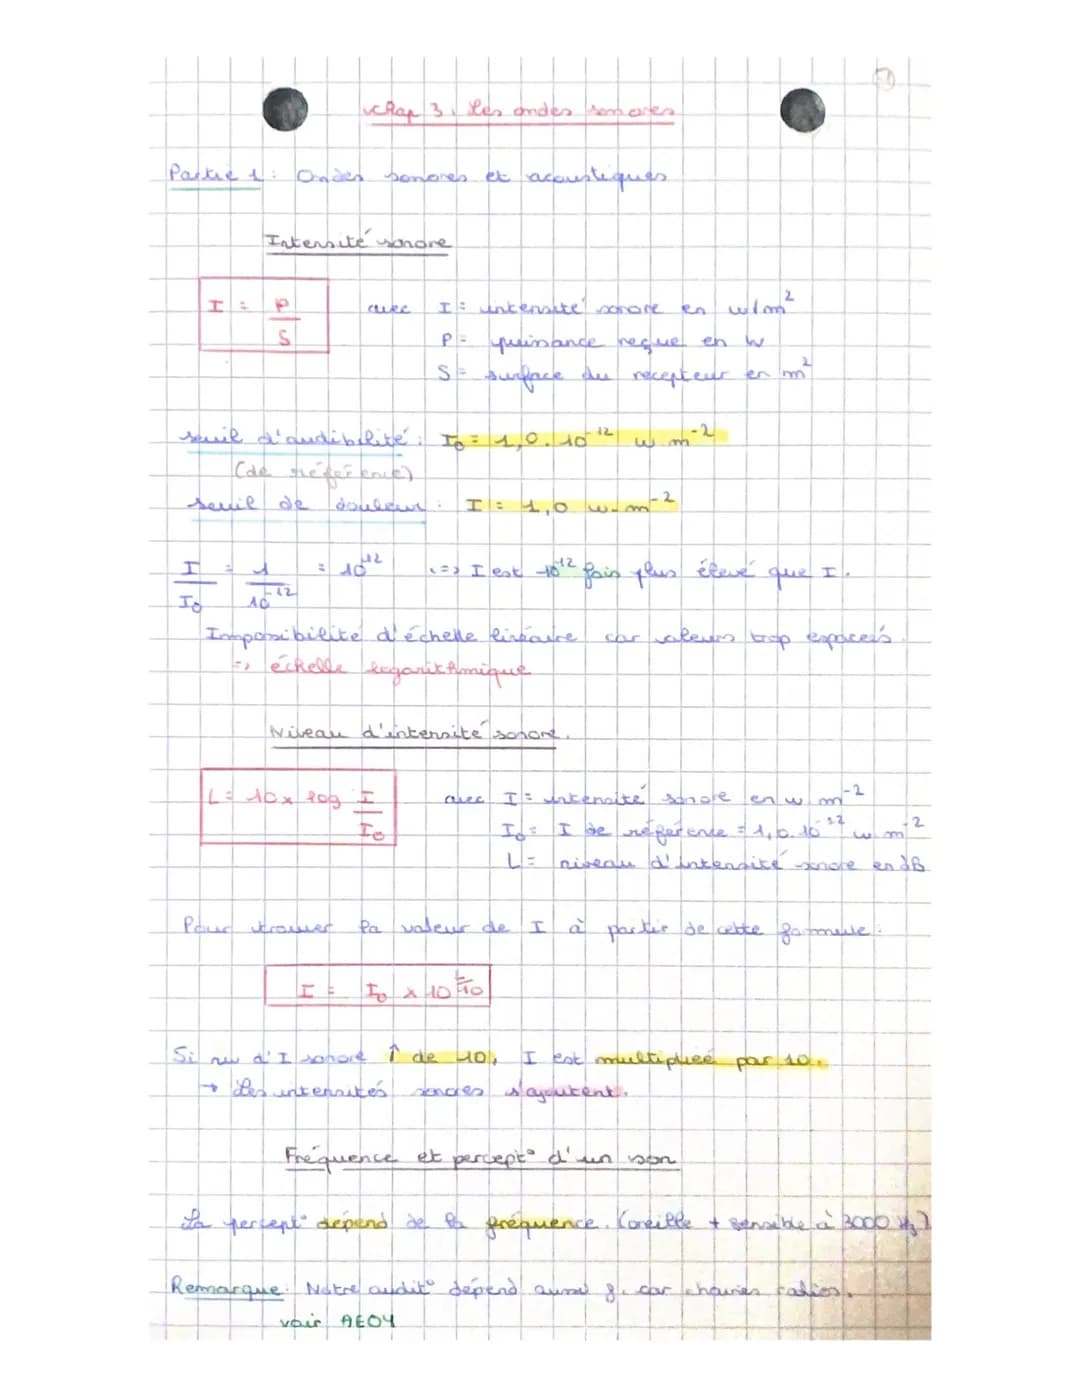 Chap 3. Les ondes sonores
Partie 1: Ondes sonores et acoustiques
Intensité sonore
I = P/S avec I = intensité sonore en w/m²
P = puissance reçue en W
S = surface du recepteur en m²
seuil d'audibilité: I₀ = 1,0.10⁻¹² w.m⁻²
(de référence)
seuil de douleur: I = 1,0 w.m⁻²
I/I₀ = 1/10⁻¹² = 10¹² <=> I est 10¹² fois plus élevé que I.
Impossibilité d'échelle linéaire car valeurs trop espacées.
=> échelle logarithmique
Niveau d'intensité sonore.
L = 10 x log I/I₀ avec I = intensité sonore en w m⁻²
I₀ = I de référence = 1,0.10⁻¹² w m⁻²
L = niveau d'intensité sonore en dB
Pour trouver la valeur de I à partir de cette formule:
I = I₀ x 10^L/10
Si d'I sonore ↑ de 10, I est multipliée par 10.
→ Les intensités sonores s'ajoutent.
Fréquence et percept° d'un son
La percept° dépend de la fréquence. (oreille + sensible à 3000 Hz)
Remarque: Notre audit° dépend aussi car
voir AE04